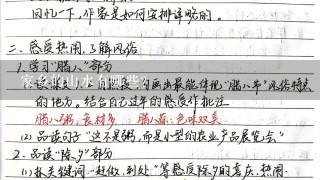 回忆一下,作家是如何安排详略的。
二、感受热闹,了解风俗
1. 学习“腊八”部分
家乡的山水有哪些?
画出最能体现“腊八节”风俗特点
的地方。结合自己过年的感受作批注
腊八粥:食材多 腊八蒜:色味双美
(2) 品读句子“这不是粥,而是小型的农业产品展览会”
2. 品读“除夕”部分
(1) 抓关键词:“赶做、到处”等感受除夕的喜庆、热闹